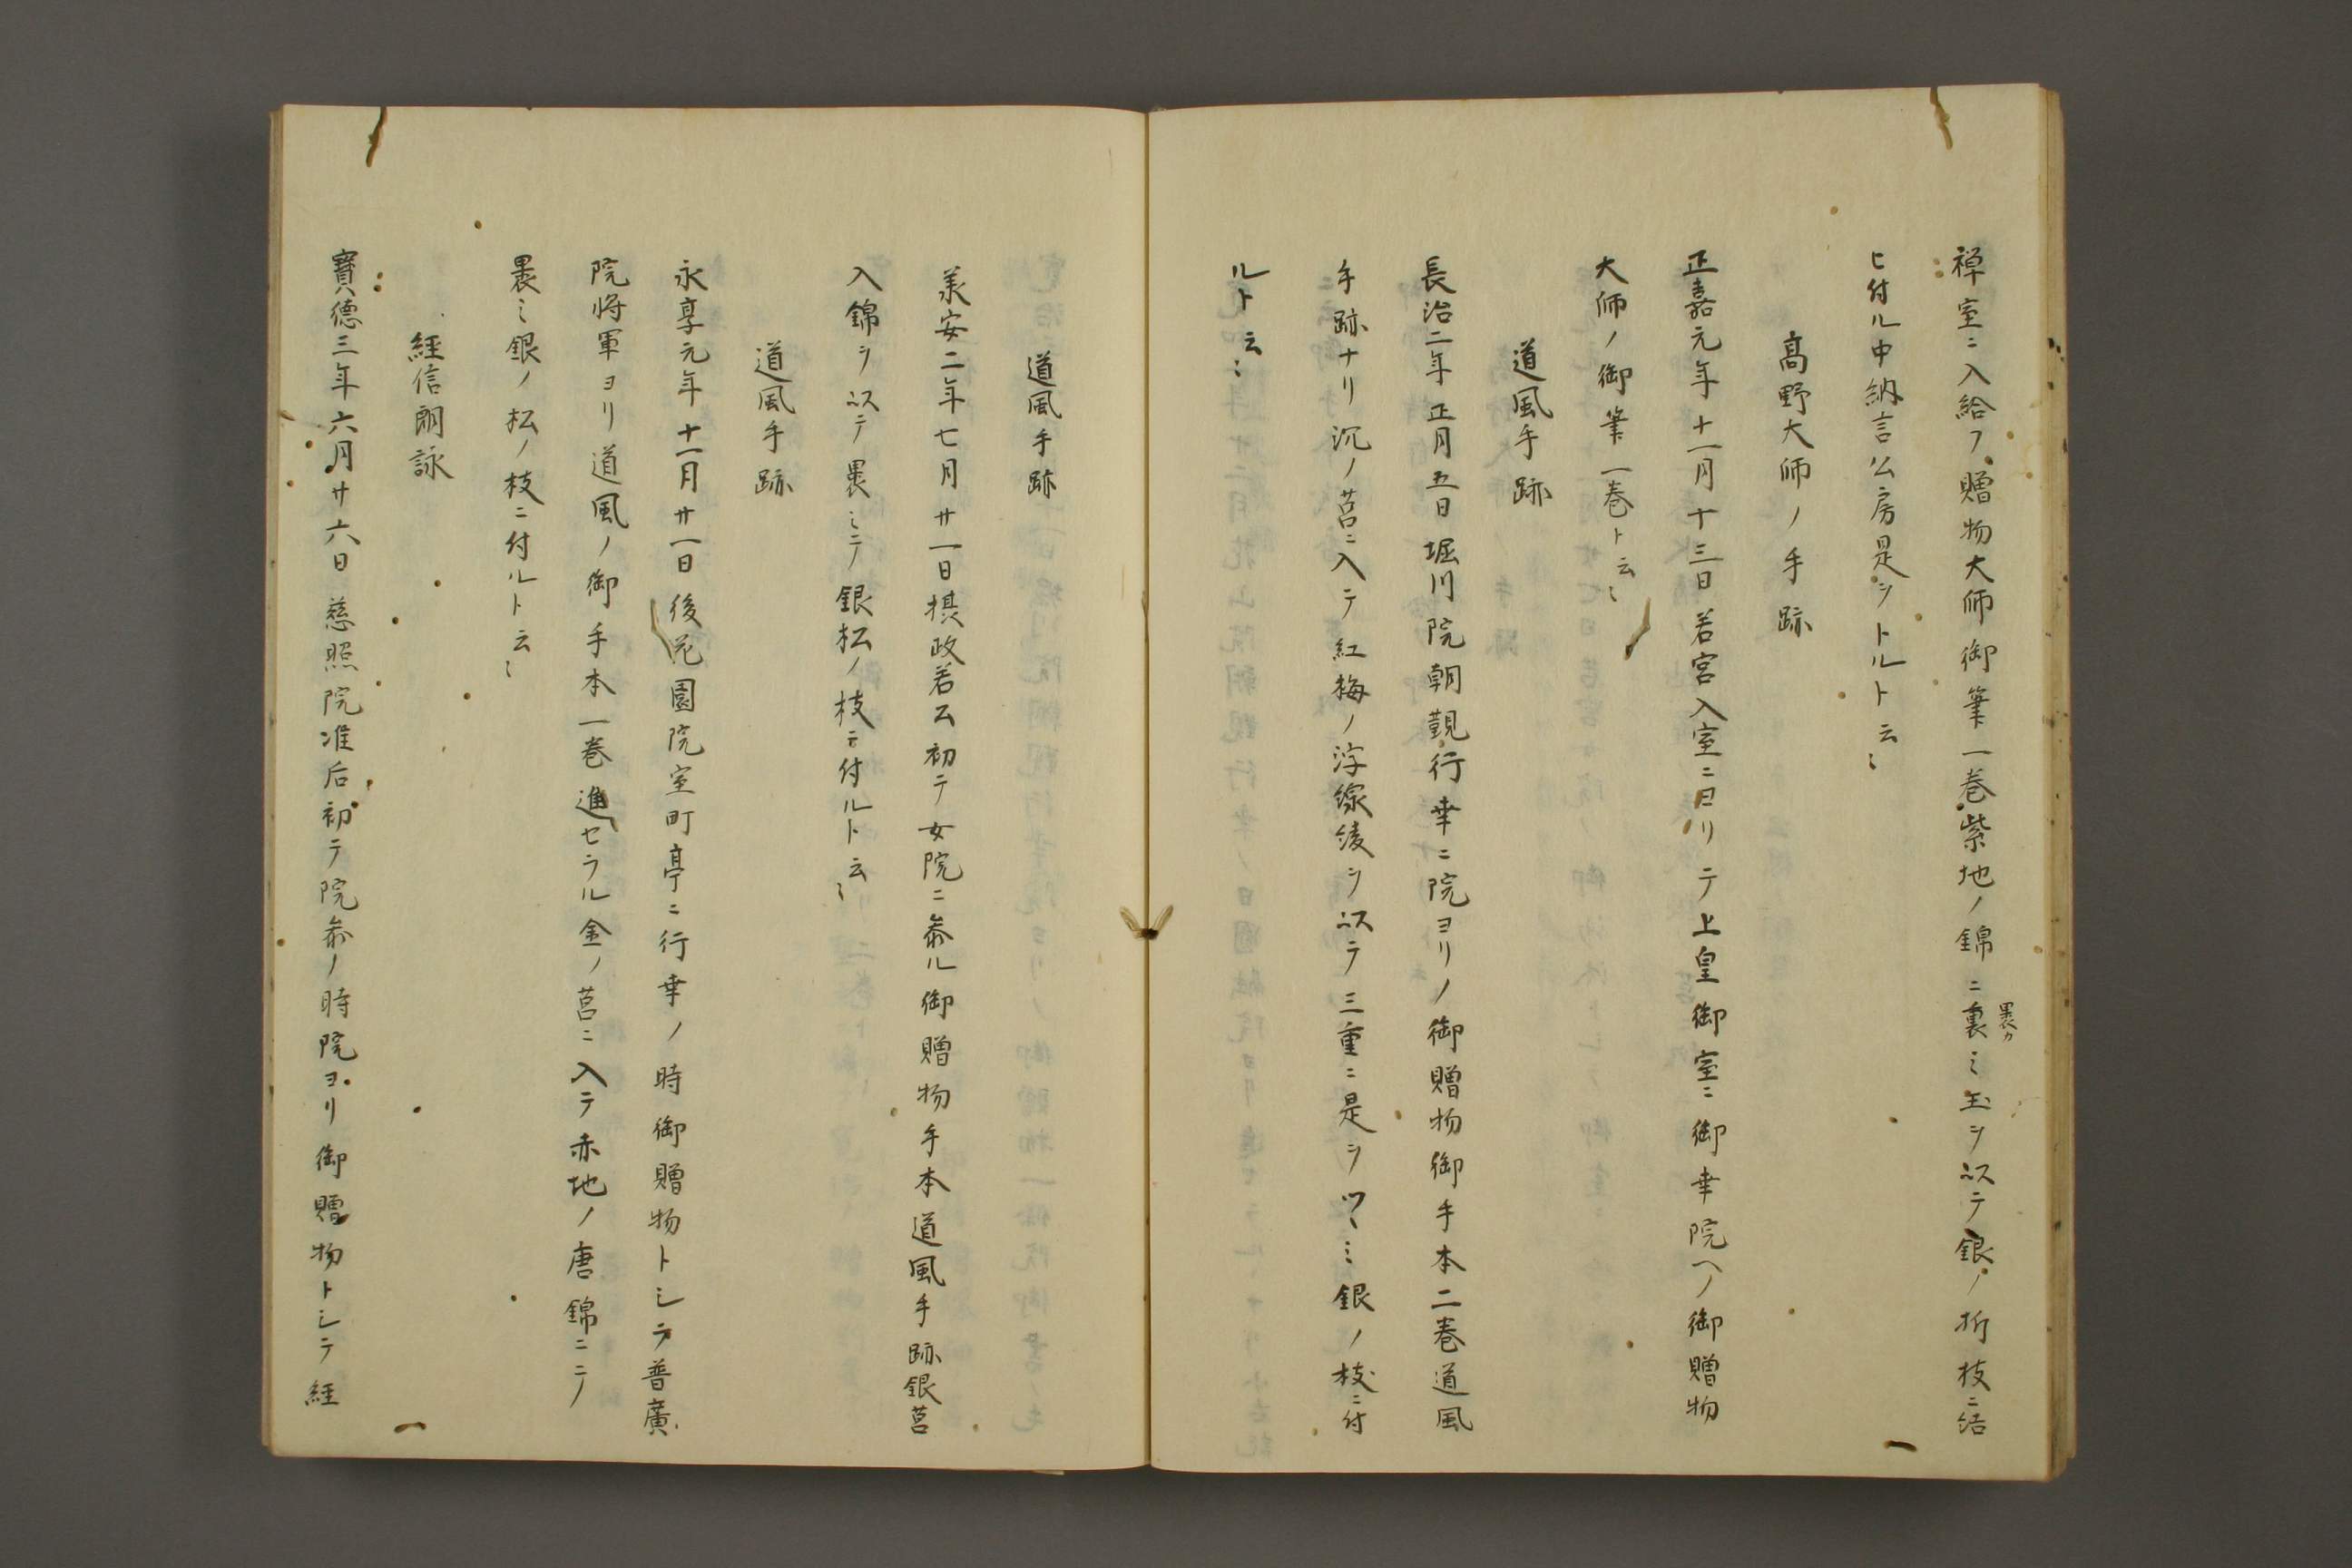 禅室ニ入給フ贈物大師御筆一巻紫地ノ錦ニ裏ミ玉ヲ以テ銀ノ折枝ニ結
裹カ
ヒ付ル中納言公房是ヲトルト云〻
高野大師ノ手跡
正嘉元年十一月十三日若宮入室ニヨリテ上皇御室ニ御幸院ヘノ御贈物
大師ノ御筆一巻ト云〻
道風手跡
長治二年正月五日堀川院朝覲行幸ニ院ヨリノ御贈物御手本二巻道風
手跡ナリ沉ノ莒ニ入テ紅梅ノ浮線綾ヲ以テ三重ニ是ヲツヽミ銀ノ枝ニ付
ルト云〻
道風手跡
美安二年七月廿一日摂政若公初テ女院ニ参ル御贈物手本道風手跡銀莒
入錦ヲ以テ裹ミテ銀松ノ枝ニ付ルト云〻
道風手跡
永享元年十二月廿一日後花園院室町亭ニ行幸ノ時御贈物トシテ普廣
院将軍ヨリ道風ノ御手本一巻進セラル金ノ莒ニ入テ赤地ノ唐錦ニテ
裹ミ銀ノ松ノ枝ニ付ルト云〻
経信朗詠
寳徳三年六月廿六日慈照院准后初テ院参ノ時院ヨリ御贈物トシテ経